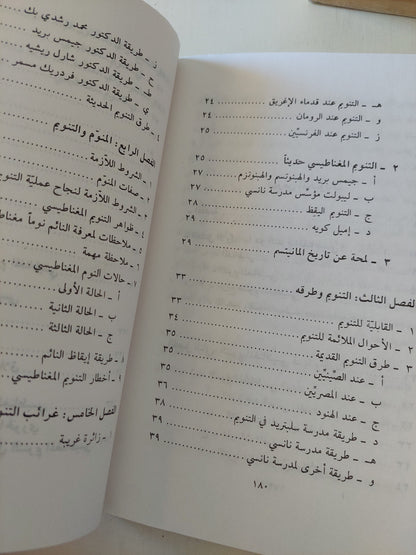 هـ ـ التنويم عند قدماء الإغريق ........ ٢٤
و ـ التنويم عند الرومان ........ ٢٤
ز ـ التنويم عند الفرنسيّين ........ ٢٥
٢ ـ التنويم المغناطيسي حديثاً ........ ٢٥
أ ـ جيمس بريد والهبنوتسم والهبنوتزم ........ ٢٧
ب ـ ليبولت مؤسّس مدرسة نانسي ........ ٢٧
ج ـ التنويم اليقظ ........ ٢٨
د ـ إميل كويه ........ ٢٩
٣ ـ لمحة عن تاريخ المانيتسم ........ ٢٩
الفصل الثالث: التنويم وطرقه ........ ٣٣
١ ـ القابليّة للتنويم ........ ٣٣
٢ ـ الأحوال الملائمة للتنويم ........ ٣٤
٣ ـ طرق التنويم القديمة ........ ٣٥
أ ـ عند الصّينيّين ........ ٣٥
ب ـ عند المصريّين ........ ٣٦
ج ـ عند الهنود ........ ٣٨
د ـ طريقة مدرسة سلبتريد في التنويم ........ ٣٩
هـ ـ طريقة مدرسة نانسي ........ ٣٩
و ـ طريقة أخرى لمدرسة نانسي ........ ٣٩
١٨٠
ز ـ طريقة الدكتور محمد رشدي بك
ح ـ طريقة الدكتور جيمس بريد
ط ـ طريقة الدكتور شارل ريشيه
ي ـ طريقة الدكتور فردريك مسمر
٤ ـ طرق التنويم الحديثة
الفصل الرابع: المنوّم والتنويم
١ ـ الشروط اللازمة
٢ ـ صفات المنوّم
٣ ـ الشروط اللازمة لنجاح عمليّة التنويم
٤ ـ ظواهر التنويم المغناطيسي
٥ ـ ملاحظات لمعرفة النائم نوماً
٦ ـ ملاحظة مهمة
٧ ـ حالات النوم المغناطيسي
أ ـ الحالة الأولى
ب ـ الحالة الثانية
ج ـ الحالة الثالثة
٨ ـ طريقة إيقاظ النائم
٩ ـ أخطار التنويم المغناطيسي
الفصل الخامس: غرائب
١ ـ زائرة غريبة